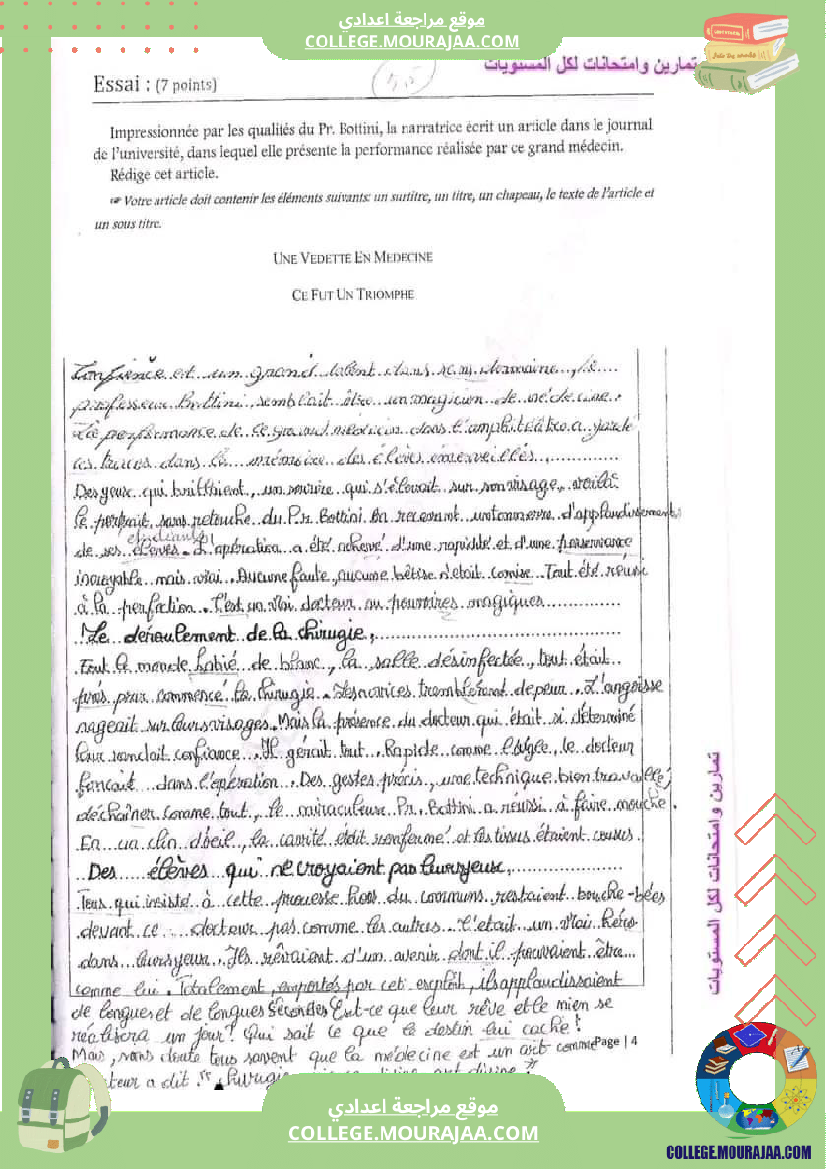 موقع مراجعة اعدادي
COLLEGE.MOURAJAA.COM
تمارين وامتحانات لكل المستويات
4,5
Essai : (7 points)
Impressionnée par les qualités du Pr. Bottini, la narratrice écrit un article dans le journal
de l'université, dans lequel elle présente la performance réalisée par ce grand médecin.
Rédige cet article.
☞ Votre article doit contenir les éléments suivants: un surtitre, un titre, un chapeau, le texte de l'article et
un sous titre.
UNE VEDETTE EN MEDECINE
CE FUT UN TRIOMPHE
et un grand talent dans son domaine, le
professeur Bottini, semblait être un magicien de médecine.
La performance de ce grand médecin dans l'amphithéâtre a gardé
ces traces dans la mémoire des élèves émerveillés.
Des yeux qui brillaient, un sourire qui s'élevait sur son visage, voilà
le portrait sans retouche du Pr. Bottini en recevant un tonnerre d'applaudissements
étudiants
de ses élèves. L'opération a été achevé d'une rapidité et d'une
incroyable mais vrai. Aucune faute, aucune bêtise n'était comise. Tout été réussi
à la perfection. C'est un vrai docteur au pouvoires magiques
Le déroulement de la chirugie,
Tout le monde habié de blanc, la salle désinfectée, tout était
près pour commence la chirugie. Les novices de peur. L'angoisse
nageait sur leurs visages. Mais la présence du docteur qui était si déterminé
leur rendait confiance. Il gérait tout. Rapide comme l'aigle, le docteur
fonçait dans l'opération. Des gestes précis, une technique bien travaillé,
déchaîner comme tout, le miraculeux Pr. Bottini a réussi à faire mouche.
En un clin d'oeil, la cavité était renfermé et les tissus étaient cousus.
Des élèves qui ne croyaient pas leurs yeux,
Tous qui insisté à cette prouesse hors du communs restaient bouche-bées
devant ce docteur pas comme les autres. C'etait un vrai Héro
dans leurs yeux. Ils rêvaient d'un avenir dont il pouvaient être
comme lui. Totalement, emportés par cet exploit, ils applaudissaient
de longues et de longues secondes Est-ce que leur rêve et le mien se
réalisera un jour? Qui sait ce que le destin lui cache!
Mais, sans doute tous savent que la médecine est un art comme
Page | 4
a dit " divine "
تمارين وامتحانات لكل المستويات
موقع مراجعة اعدادي
COLLEGE.MOURAJAA.COM
COLLEGE.MOURAJAA.COM